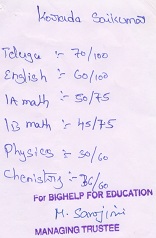 Kovvada Saikumar
Telugu :- 70/100
English :- 60/100
IA math :- 50/75
IB math :- 45/75
Physics :- 50/60
Chemistry :- 36/60
For BIGHELP FOR EDUCATION
M. Sarojini
MANAGING TRUSTEE